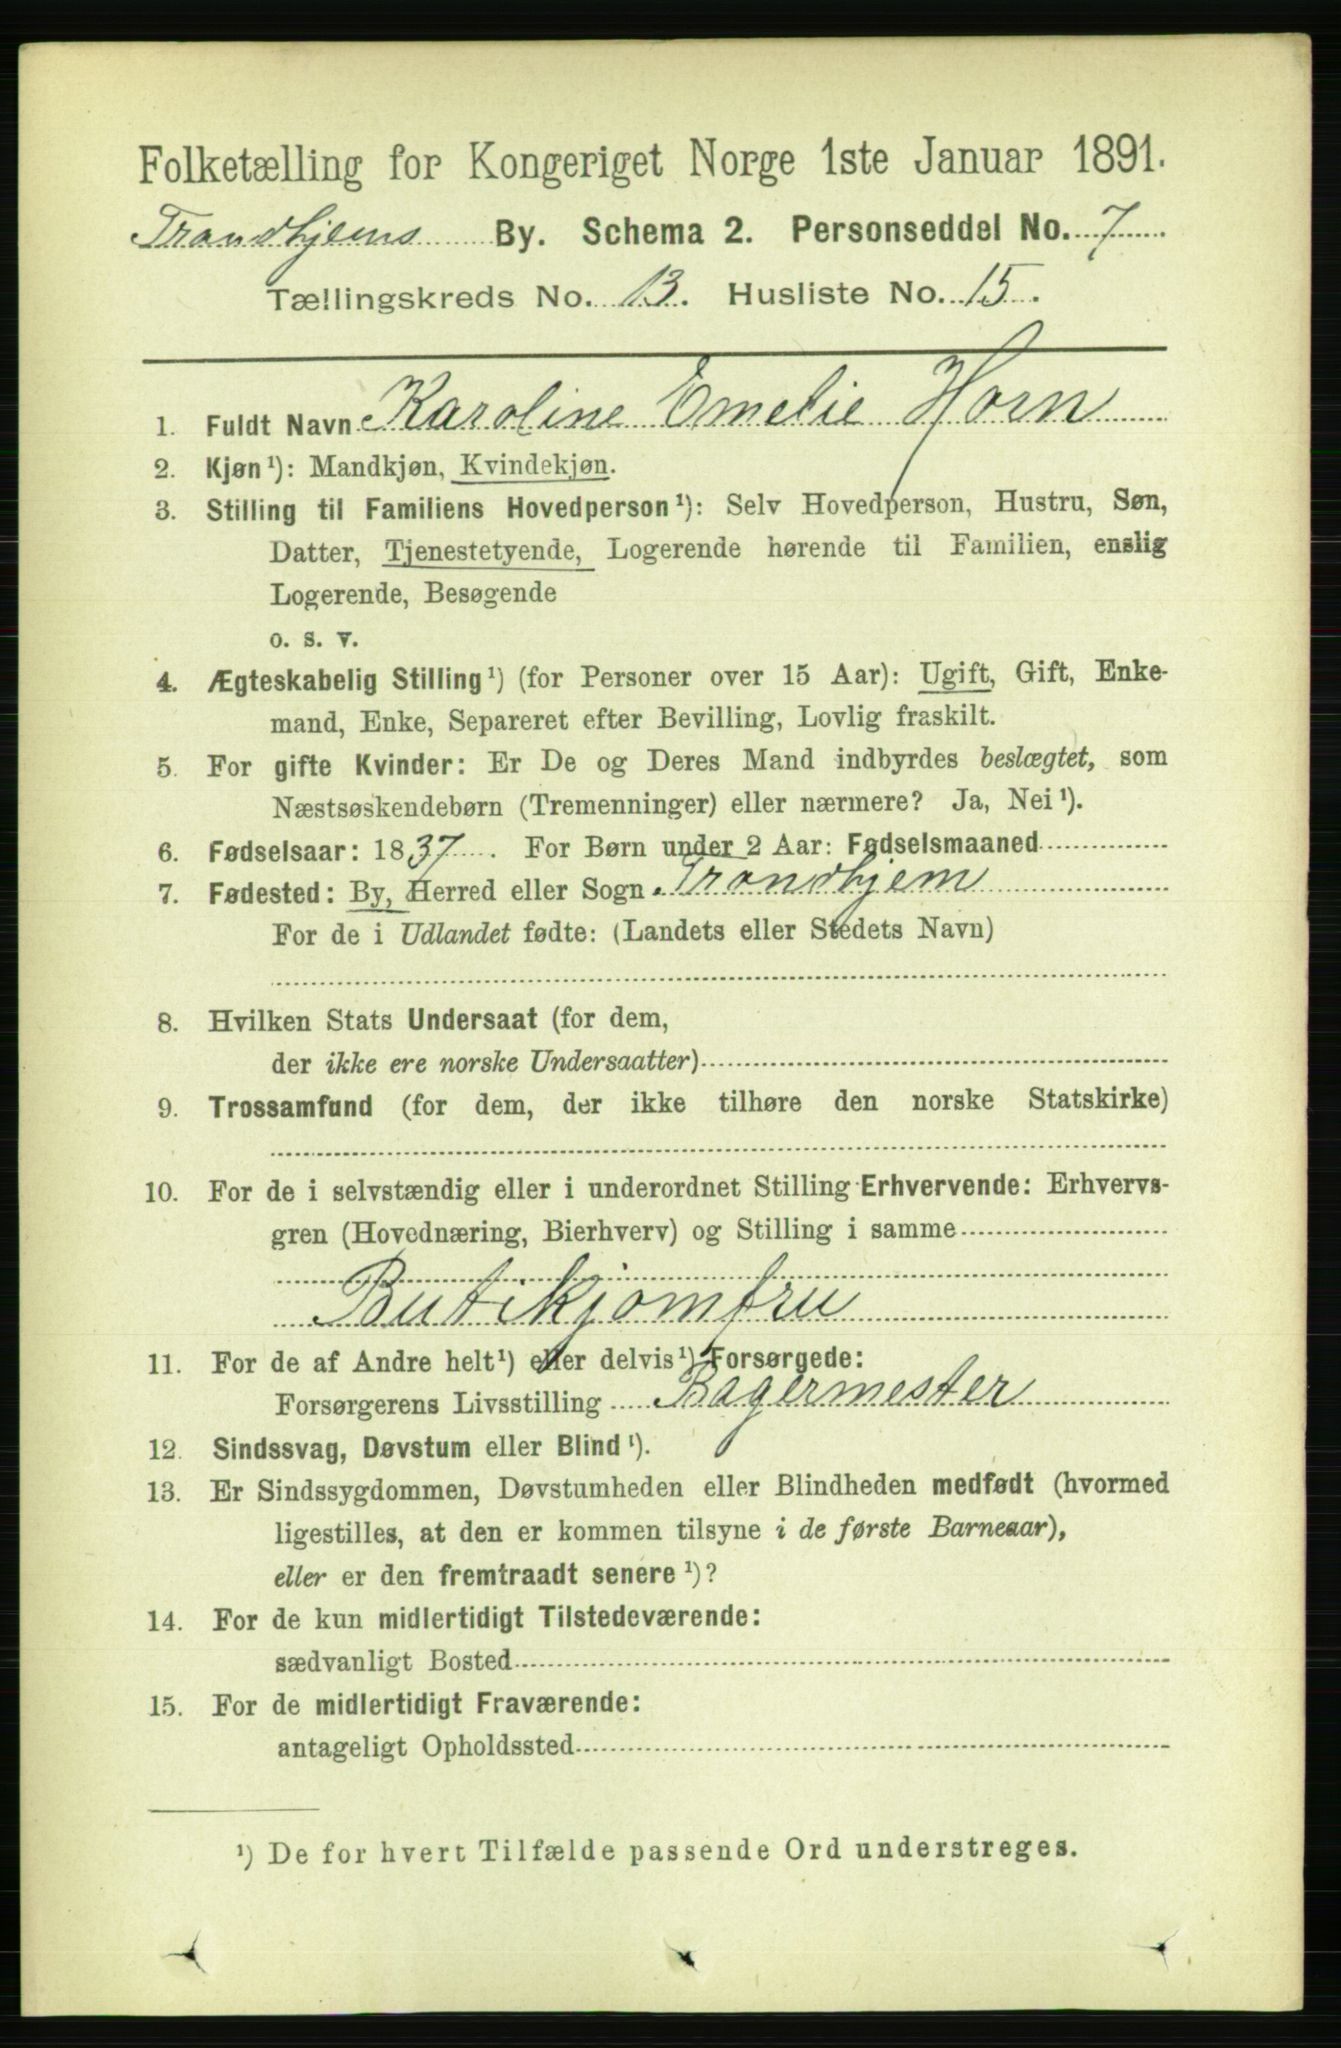 Folketælling for Kongeriget Norge 1ste Januar 1891.
Trondhjems By. Schema 2. Personseddel No. 7
Tællingskreds No. 13. Husliste No. 15.
1. Fuldt Navn Karoline Emelie Horn
2. Kjøn¹): Mandkjøn, Kvindekjøn.
3. Stilling til Familiens Hovedperson¹): Selv Hovedperson, Hustru, Søn,
Datter, Tjenestetyende, Logerende hørende til Familien, enslig
Logerende, Besøgende
o. s. v.
4. Ægteskabelig Stilling¹) (for Personer over 15 Aar): Ugift, Gift, Enke-
mand, Enke, Separeret efter Bevilling, Lovlig fraskilt.
5. For gifte Kvinder: Er De og Deres Mand indbyrdes beslægtet, som
Næstsøskendebørn (Tremenninger) eller nærmere? Ja, Nei¹).
6. Fødselsaar: 1837. For Børn under 2 Aar: Fødselsmaaned
7. Fødested: By, Herred eller Sogn Trondhjem
For de i Udlandet fødte: (Landets eller Stedets Navn)
8. Hvilken Stats Undersaat (for dem,
der ikke ere norske Undersaatter)
9. Trossamfund (for dem, der ikke tilhøre den norske Statskirke)
10. For de i selvstændig eller i underordnet Stilling Erhvervende: Erhvervs-
gren (Hovednæring, Bierhverv) og Stilling i samme
Butikjomfru
11. For de af Andre helt¹) eller delvis¹) Forsørgede:
Forsørgerens Livsstilling Bagermester
12. Sindssvag, Døvstum eller Blind¹).
13. Er Sindssygdommen, Døvstumheden eller Blindheden medfødt (hvormed
ligestilles, at den er kommen tilsyne i de første Barneaar),
eller er den fremtraadt senere¹)?
14. For de kun midlertidigt Tilstedeværende:
sædvanligt Bosted
15. For de midlertidigt Fraværende:
antageligt Opholdssted
¹) De for hvert Tilfælde passende Ord understreges.